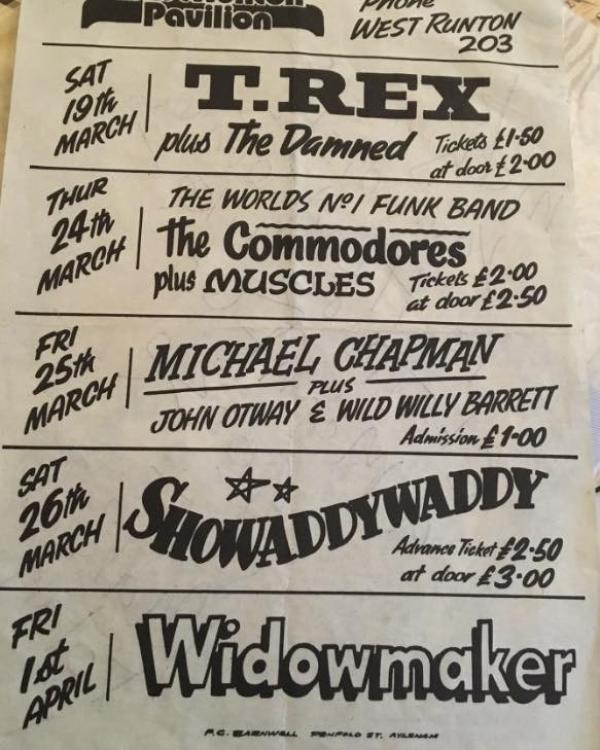 Pavilion
Phone
WEST RUNTON
203
SAT
19th
MARCH
T.REX
plus The Damned
Tickets £1·50
at door £2·00
THUR
24th
MARCH
THE WORLDS No1 FUNK BAND
the Commodores
plus MUSCLES
Tickets £2·00
at door £2·50
FRI
25th
MARCH
MICHAEL CHAPMAN
PLUS
JOHN OTWAY & WILD WILLY BARRETT
Admission £1·00
SAT
26th
MARCH
SHOWADDYWADDY
Advance Ticket £2·50
at door £3·00
FRI
1st
APRIL
Widowmaker
P.C. BARNWELL PENFOLD ST. AYLSHAM